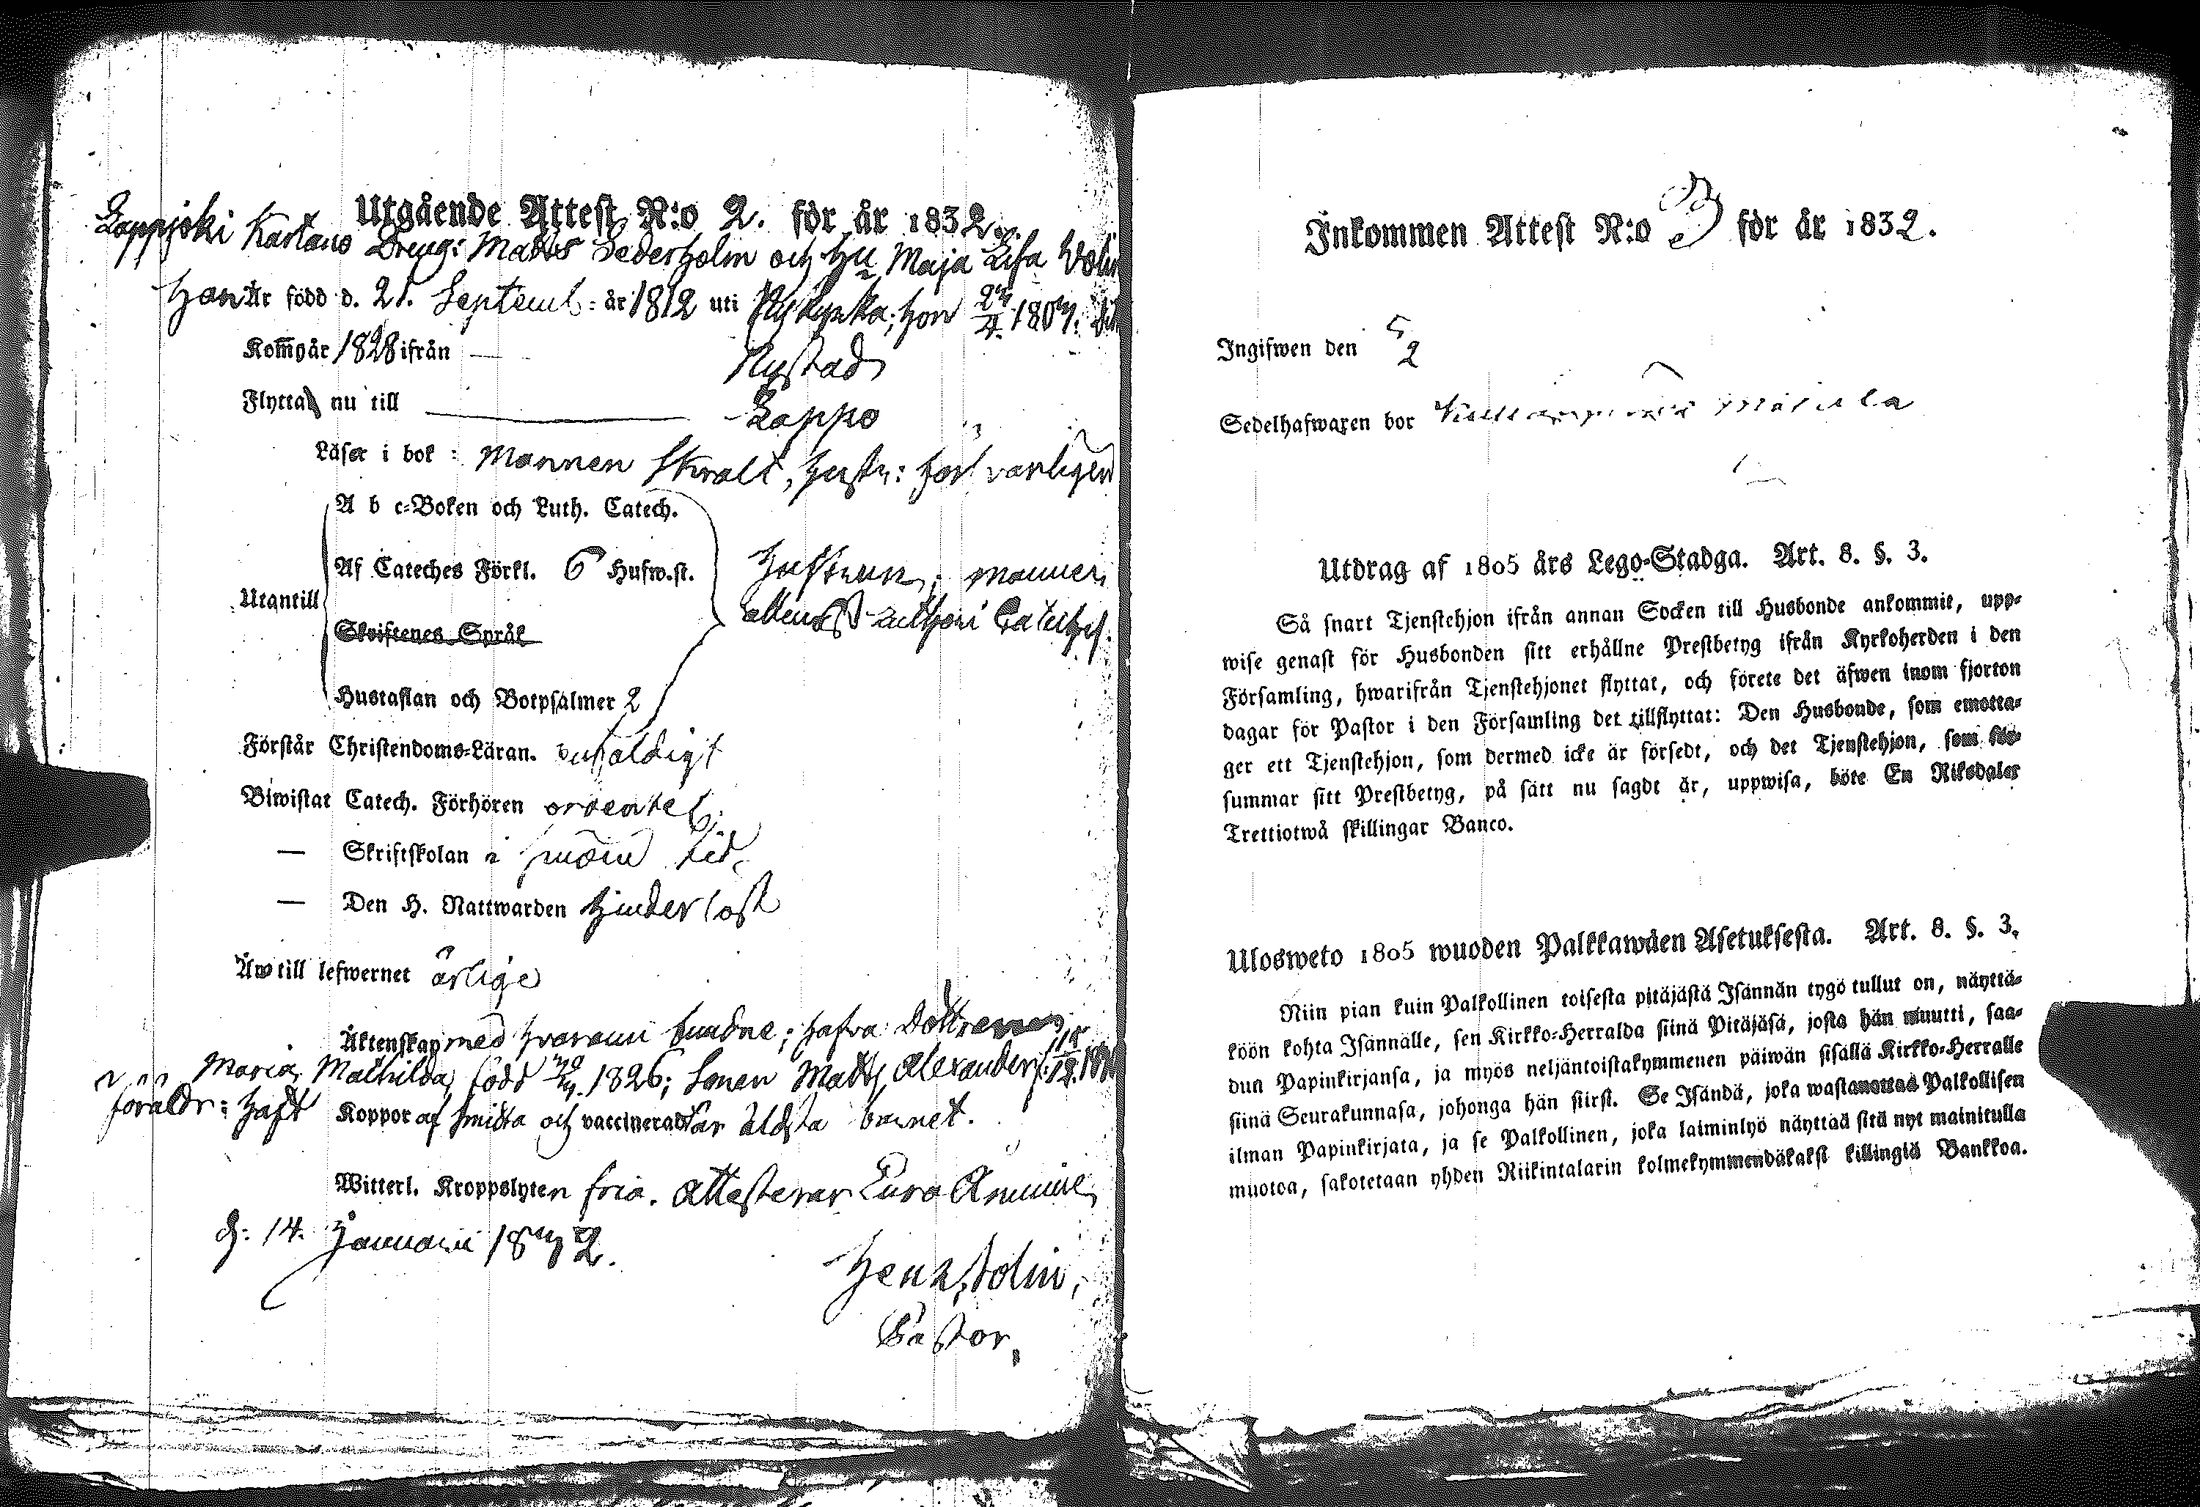 Utgående Attest N:o 2. för år 1832.
Lappjoki Kartano Dreng: Matts Sederholm och Hu Maja Lisa
Han Är född d. 21. Septemb: år 1812 uti Nykyrka; hon
Kom̄ år 1828 ifrån — Nystad
Flytta nu till Lappo
Läser i bok: Mannen Svalt, hustr: förs varligen
A b c-Boken och Luth. Catech.
Af Cateches Förkl. 6 Hufw.st. Hustrun; mannen
Utantill allenast Lutheri Cateches.
Skriftenes Språk
Hustaflan och Botpsalmer 2
Förstår Christendoms-Läran. enfaldigt
Biwistat Catech. Förhören ordentel:
— Skriftskolan i sinom tid,
— Den H. Nattwarden hinderlöst
Är till lefwernet ärlige
Äktenskap med hvarann bundne; hafva Dottren
Maria Mathilda, född 1826; Sonen Matts Alexander f.
föräldr: haft Koppor af smitta och vaccinerad är äldsta barnet.
Witterl. Kroppslyten fria. Attesterar Eura Åminne,
d: 14. Januarii 1832.
Pastor,
Inkommen Attest N:o 3 för år 1832.
Ingifwen den 5/2
Sedelhafwaren bor
Utdrag af 1805 års Lego-Stadga. Art. 8. §. 3.
Så snart Tjenstehjon ifrån annan Socken till Husbonde ankommit, upp-
wise genast för Husbonden sitt erhållne Prestbetyg ifrån Kyrkoherden i den
Församling, hwarifrån Tjenstehjonet flyttat, och förete det äfwen inom fjorton
dagar för Pastor i den Församling det tillflyttat: Den Husbonde, som emotta-
ger ett Tjenstehjon, som dermed icke är försedt, och det Tjenstehjon, som för-
summar sitt Prestbetyg, på sätt nu sagdt är, uppwisa, böte En Riksdaler
Trettiotwå skillingar Banco.
Ulosweto 1805 wuoden Palkkawäen Asetuksesta. Art. 8. §. 3.
Niin pian kuin Palkollinen toisesta pitäjästä Isännän tygö tullut on, näyttä-
köön kohta Isännälle, sen Kirkko-Herralda siinä Pitäjäsä, josta hän muutti, saa-
dun Papinkirjansa, ja myös neljäntoistakymmenen päiwän sisällä Kirkko-Herralle
siinä Seurakunnasa, johonga hän siirst. Se Isändä, joka wastanottaa Palkollisen
ilman Papinkirjata, ja se Palkollinen, joka laiminlyö näyttää sitä nyt mainitulla
muotoa, sakotetaan yhden Riikintalarin kolmekymmendäkaksi killingiä Bankkoa.